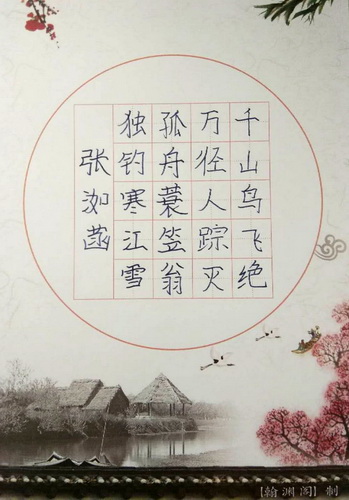 千山鸟飞绝
万径人踪灭
孤舟蓑笠翁
独钓寒江雪
张洳菡
【翰渊阁】制